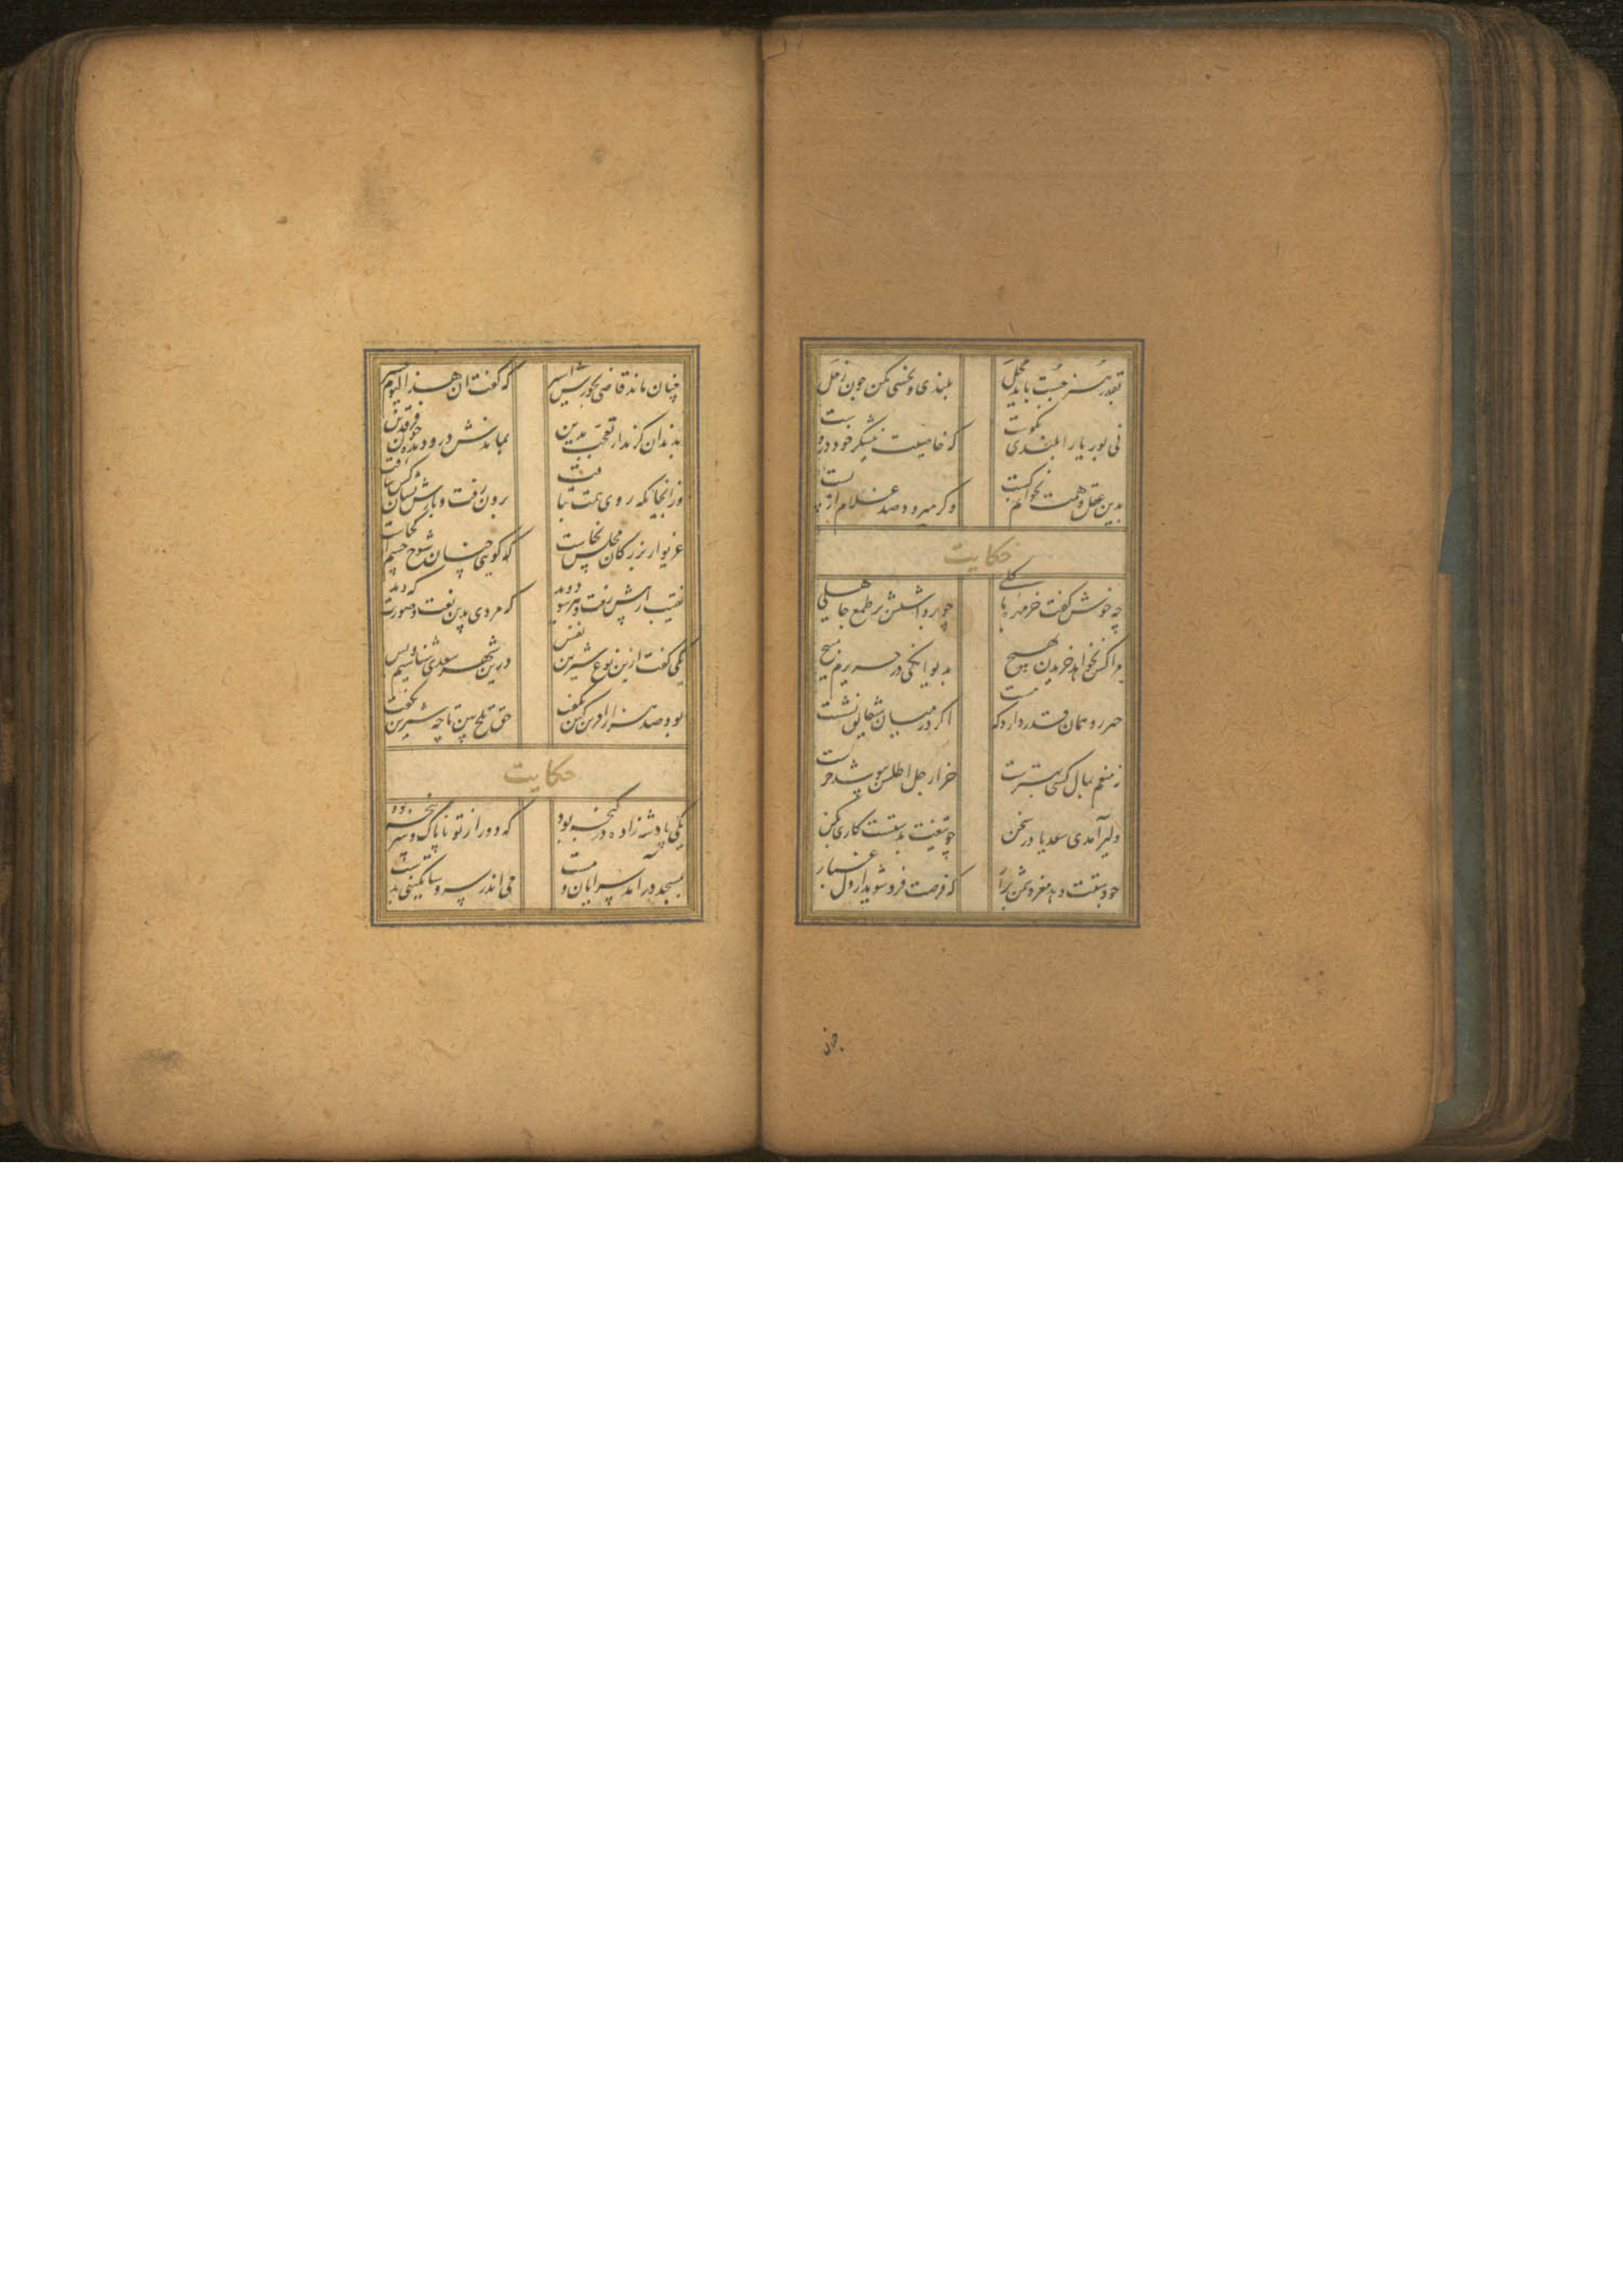 بقدر هنر جست باید محل
بلندی و نحسی مکن چون زحل
نی بوریا را بلندی نکوست
که خاصیت نیشکر خود دروست
بدین عقل و همت نخوانم کست
وگر میرود صد غلام از پست
حکایت
چه خوش گفت خرمهره با گلی
چو برداشتش پر طمع جاهلی
مرا کس نخواهد خریدن بهیچ
بدیوانگی در حریرم مپیچ
همان قدر دارد که هست
اگر در میان شقایق نشست
نه منعم بمال از کسی بهترست
خر ار جل اطلس بپوشد خرست
دلیر آمدی سعدیا در سخن
چو تیغت بدستست کاری بکن
چو دستت دهد مغز دشمن برآر
که فرصت فرو شوید از دل غبار
چنان ماند قاضی بجورش اسیر
که گفت ان هذا لیوم عسیر
بدندان گزید از تعجب یدین
بماندش درو دیده چون فرقدین
وز انجا که روی همت بتافت
برون رفت و بازش نشان کس نیافت
غریو از بزرگان مجلس بخاست
که گویی چنین شوخ چشم از کجاست
نقیب از پیش رفت و هر سو دوید
که مردی بدین نعت و صورت که دید
یکی گفت ازین نوع شیرین نفس
درین شهر سعدی شناسیم و بس
بر و صد هزار آفرین کین بگفت
حق تلخ بین تا چه شیرین بگفت
حکایت
یکی پادشه زاده در گنجه بود
که دور از تو ناپاک و سرپنجه بود
بمسجد درآمد سرایان و مست
می اندر سر و ساتگینی بدست